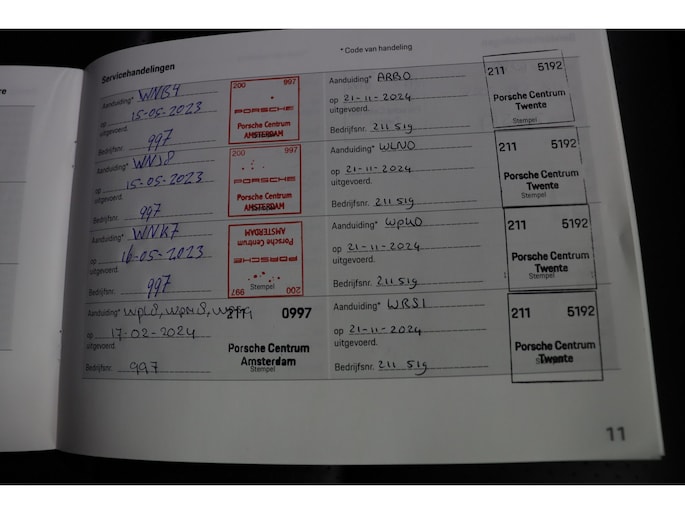 re
Servicehandelingen
* Code van handeling
Aanduiding* WNB4
op 15-05-2023
uitgevoerd.
Bedrijfsnr. 997
200 997
PORSCHE
Porsche Centrum
AMSTERDAM
Aanduiding* WNJ8
op 15-05-2023
uitgevoerd.
Bedrijfsnr. 997
200 997
PORSCHE
Porsche Centrum
AMSTERDAM
Aanduiding* WNK7
op 16-05-2023
uitgevoerd.
Bedrijfsnr. 997
200 997
PORSCHE
Porsche Centrum
AMSTERDAM
Stempel
Aanduiding* WPL8, WPM8,
op 17-02-2024
uitgevoerd.
Bedrijfsnr. 997
211 0997
Porsche Centrum
Amsterdam
Stempel
Aanduiding* ARB0
op 21-11-2024
uitgevoerd.
Bedrijfsnr. 211 519
211 5192
Porsche Centrum
Twente
Stempel
Aanduiding* WLN0
op 21-11-2024
uitgevoerd.
Bedrijfsnr. 211 519
211 5192
Porsche Centrum
Twente
Stempel
Aanduiding* WPH0
op 21-11-2024
uitgevoerd.
Bedrijfsnr. 211 519
211 5192
Porsche Centrum
Twente
Stempel
Aanduiding* WRS1
op 21-11-2024
uitgevoerd.
Bedrijfsnr. 211 519
211 5192
Porsche Centrum
Twente
11